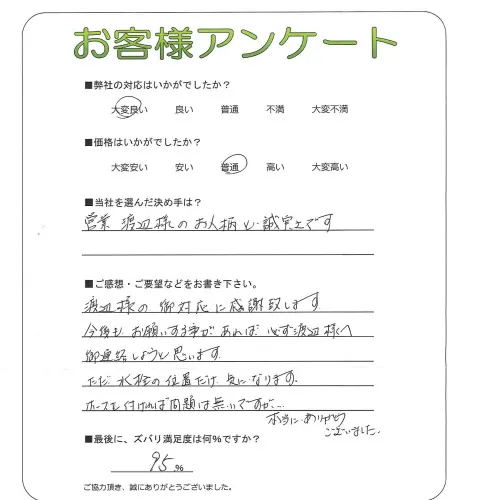 お客様アンケート
■弊社の対応はいかがでしたか？
大変良い 良い 普通 不満 大変不満
■価格はいかがでしたか？
大変安い 安い 普通 高い 大変高い
■当社を選んだ決め手は？
営業 渡辺様のお人柄と誠実さです
■ご感想・ご要望などをお書き下さい。
渡辺様の御対応に感謝致します
今後も お願いする事があれば 必ず渡辺様へ
御連絡しようと思います。
ただ 水栓の位置だけ 気になります。
ホースを付ければ問題は無いですが…
本当に ありがとう
ございました。
■最後に、ズバリ満足度は何%ですか？
95%
ご協力頂き、誠にありがとうございました。